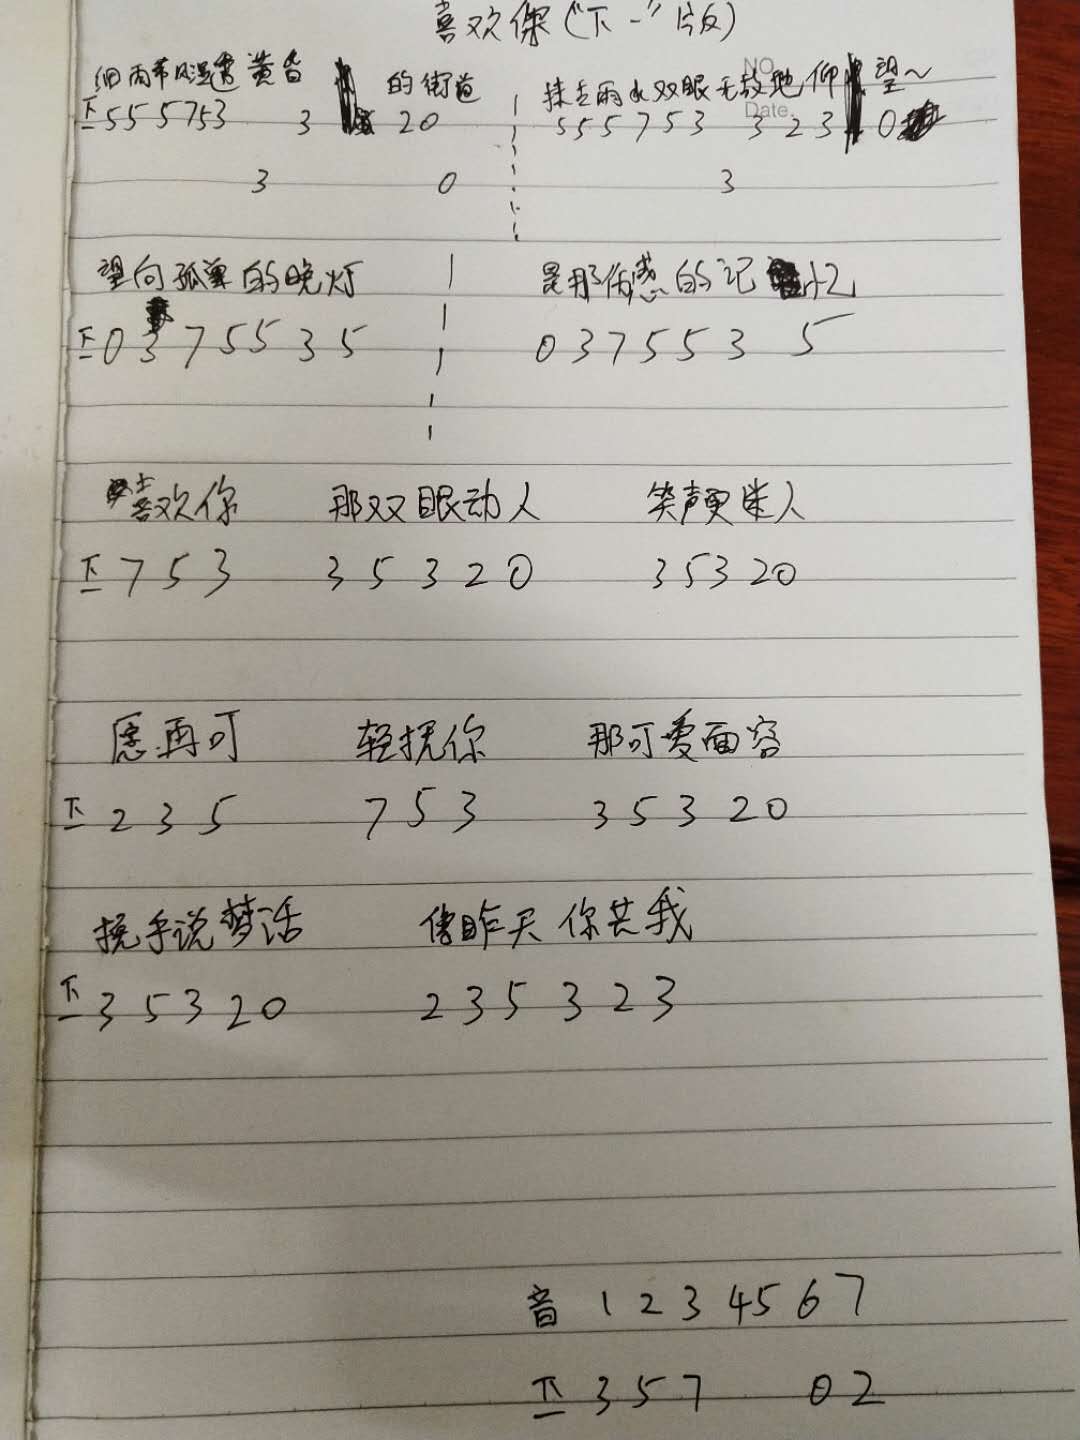 喜欢你("下一"片版)
细雨带风湿透黄昏 的街道 抹去雨水双眼无故地仰望～
NO.
Date.
下一 5 5 5 7 5 3 3 2 0 5 5 5 7 5 3 3 2 3 0
3 0 3
望向孤单的晚灯 是那伤感的记忆
下一 0 3 7 5 5 3 5 0 3 7 5 5 3 5
喜欢你 那双眼动人 笑声更迷人
下一 7 5 3 3 5 3 2 0 3 5 3 2 0
愿再可 轻抚你 那可爱面容
下一 2 3 5 7 5 3 3 5 3 2 0
挽手说梦话 像昨天 你共我
下一 3 5 3 2 0 2 3 5 3 2 3
音 1 2 3 4 5 6 7
下一 3 5 7 0 2